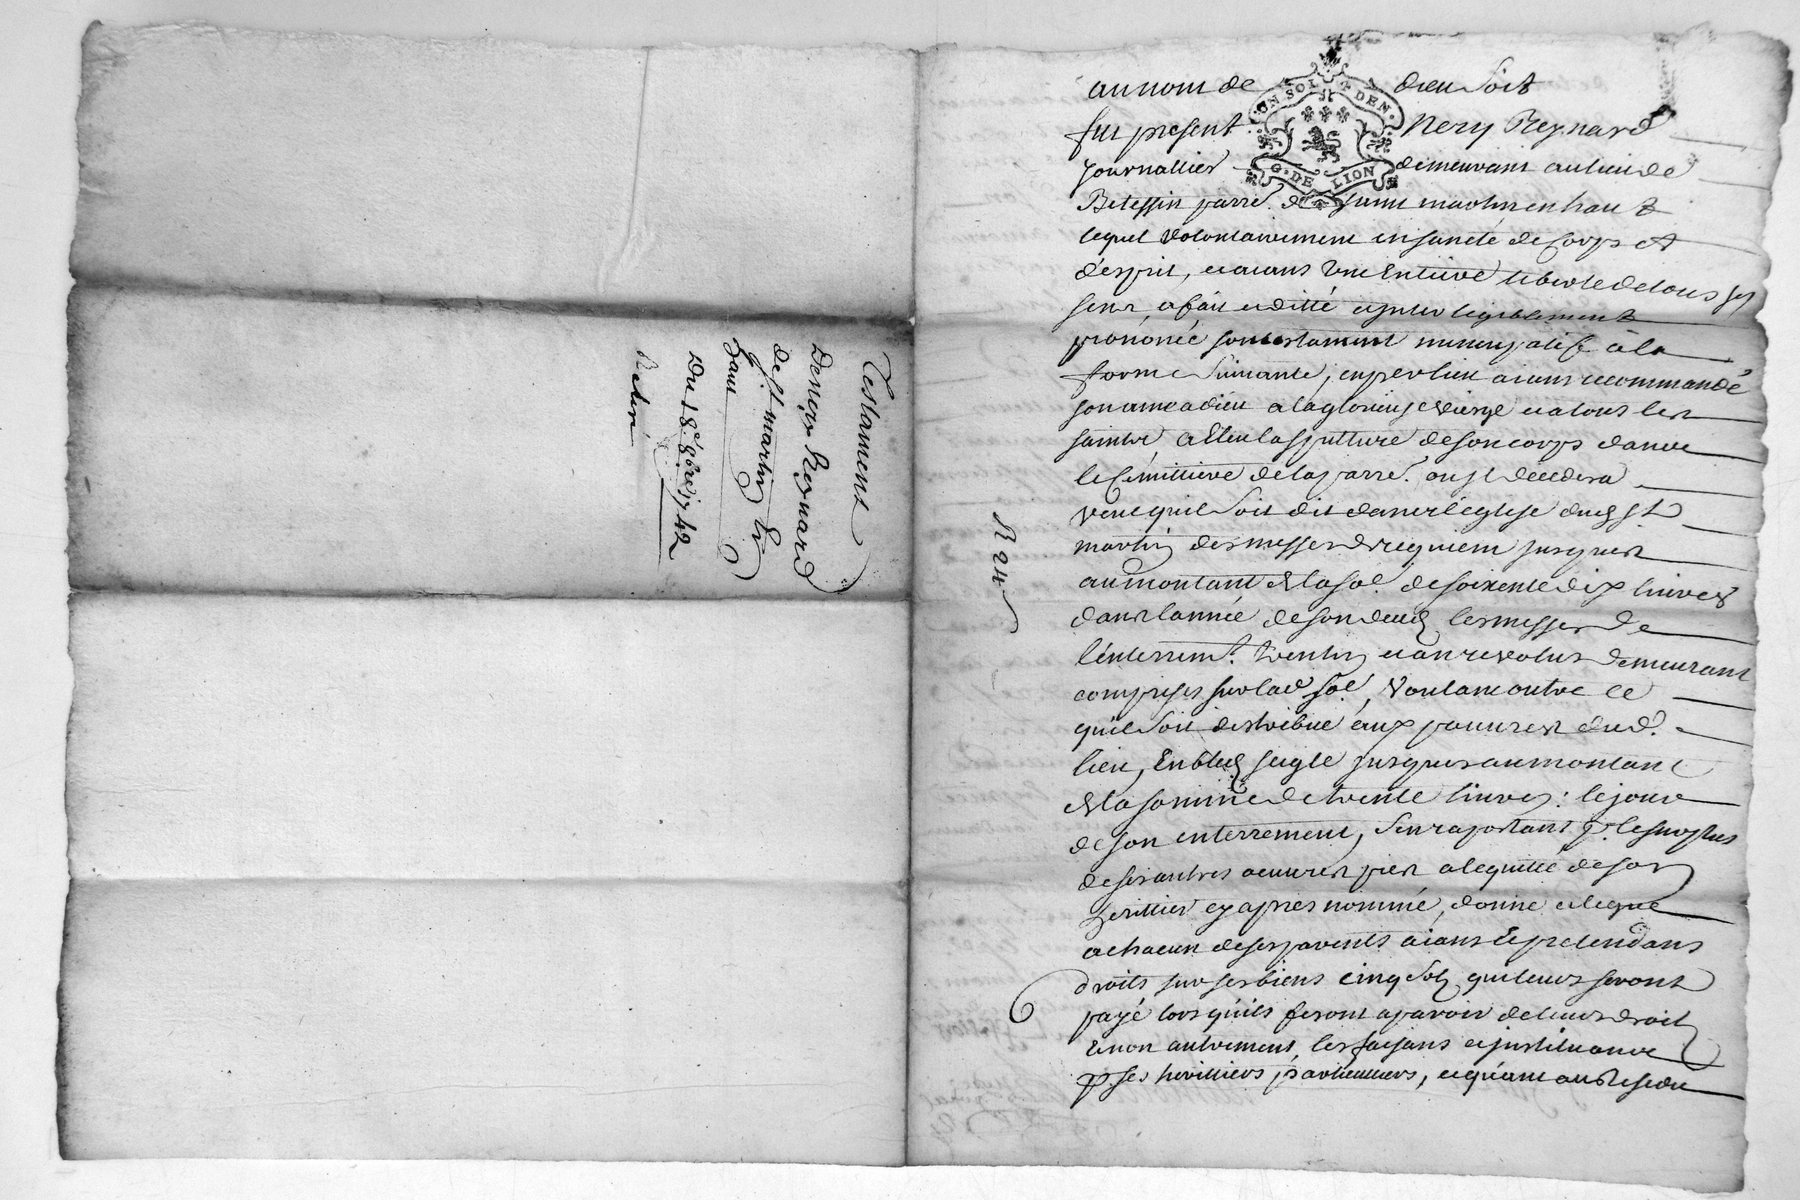 Testament
De nery Reynard
de st martin En
haut
Du 18e 9bre 1742
Retiré
R 24
UN SOL 4 DEN.
G. DE LION
au nom de dieu soit
fut present nery Reynard
journallier demeurant au lieu de
Betessin parre. de saint martin en haut
lequel volontairement en santé de corps et
d'esprit, et aiant Une Entiere liberté de tous ses
sens, a fait et ditté et
prononcé son testament nuncupatif a la
forme suivante, en per lieu aiant recommandé
son ame a dieu a la glorieuse vierge et a tous les
saints a Eleu la sepulture de son corps dans
le Cimittiere de la parre. ou il decedera
veut qu'il soit dit dans l'église dud st
martin des messes de requiem jusques
au montant de la soe. de soixente dix livres
dans l'année de son deces les messes de
l'enterremt. trentin et an revolus demeurant
comprises sur lad soe, Voulant outre ce
qu'il soit destribué aux pauvres dud.
lieu, En bled seigle jusques au montant
de la somme de trente livres: le jour
de son enterrement, s'en raportant pr. le surplus
de ses autres oeuvres pies a l'equitté de son
herittier cy apres nommé, donne et legue
a chacun de ses parents aiant et pretendans
droits sur ses biens cinq sols qui leurs seront
payé lors qu'ils feront aparoir de leurs droits
Et non autrement, les faisant et instituant
p. ses herittiers particulliers, et quant au Residu